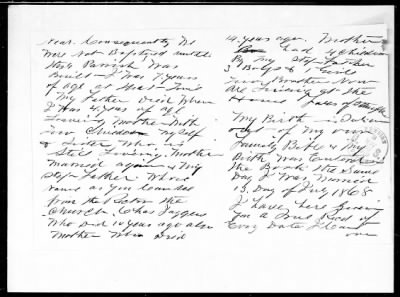 near. Consequently We
Were Not Baptized until
this Parish Was
Built I Was 7. years
of age at that Time
My Father Died When
I Was 4. years of age
Leaving Mother With
Two Children Myself
& Sister Who is
Still Living. Mother
Married again My
Step Father Whose
name as you
from the the
Church. Chas Jaggers
Who Died 10 years ago also
Mother Who Died
14. years ago. Mother
had 4 Children
By My Step Father
3 Boys & 1 Girl
Two Brothers Now
are Living at the
Home
My Birth is Taken
out of My own
Family Bible & My
Birth Was Entered
in the Book the Same
Day I Was Married
13. Day of July 1868
I have here given
you a True Record of
Every Date I Can
over